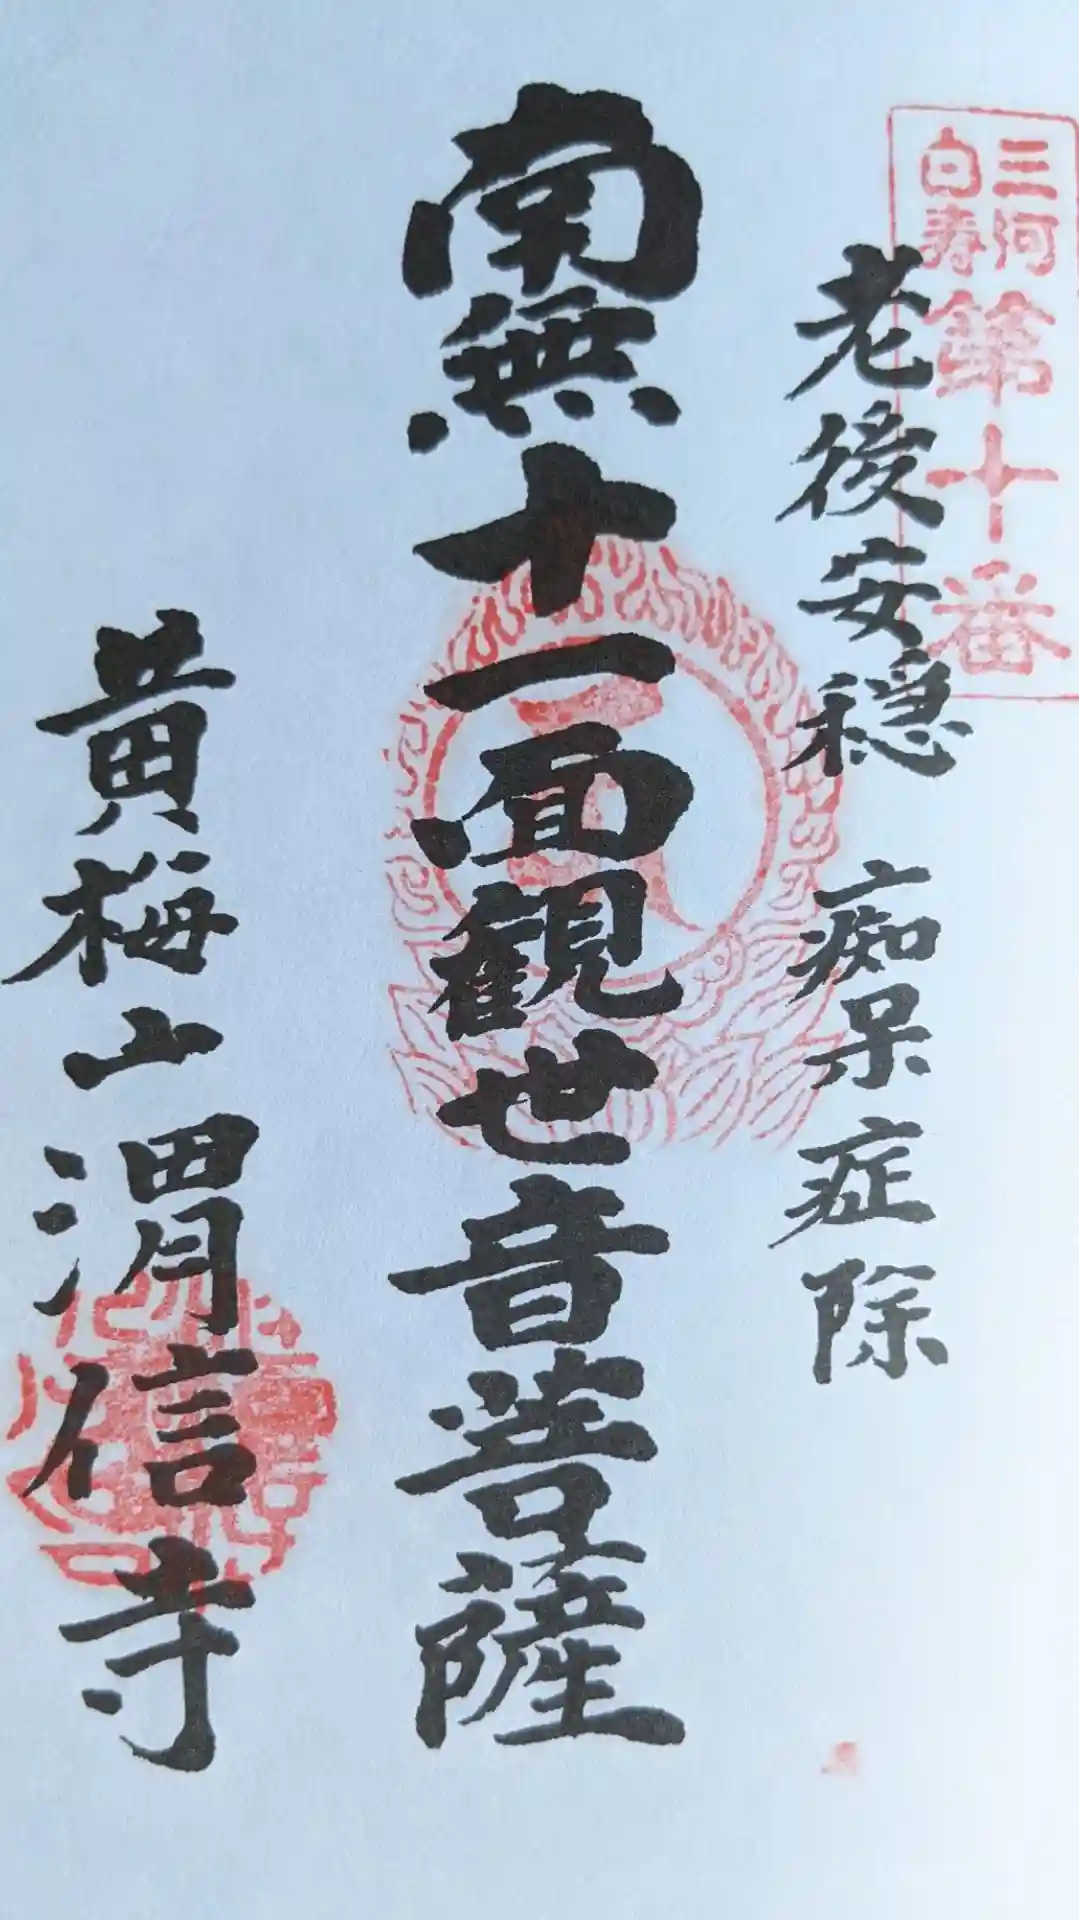 三河
白寿
第十番
老後安穏 痴呆症除
南無十一面観世音菩薩
黄梅山渭信寺